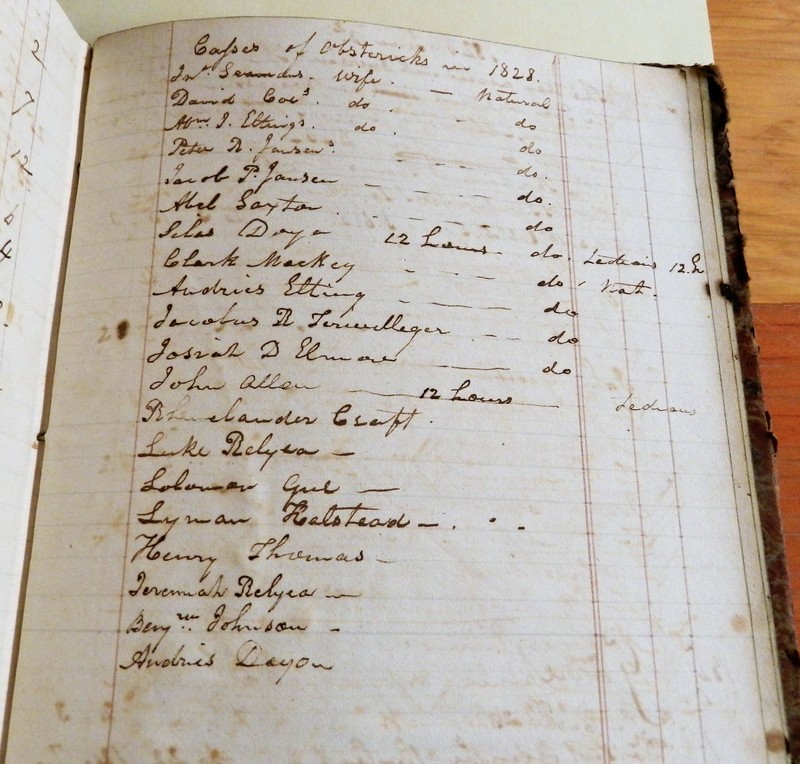 2
7
12
6
4
Casses of Obstericks in 1828.
Jnº. Seamans. Wife. — Natural
David Coes. do. do
Abm. J. Eltings. do. do
Peter R. Jansens. - - - do.
Jacob P. Jansen - - - do.
Abel Saxton. - - - do
Silas Doyo 12 hours - do. Tedious 12. h
Clark Mackey - - - do. Nat.
Andries Elting - — do
Jacobus R Terwilleger - - do
Josiah D Elmore - — do
John Allen — 12 hours — Tedious
Rhinelander Craft.
Luke Relyea —
Solomon —
Lyman Halstead —. . .
Henry Thomas —
Jeremiah Relyea —
Benjm. Johnson —
Andries Doyou